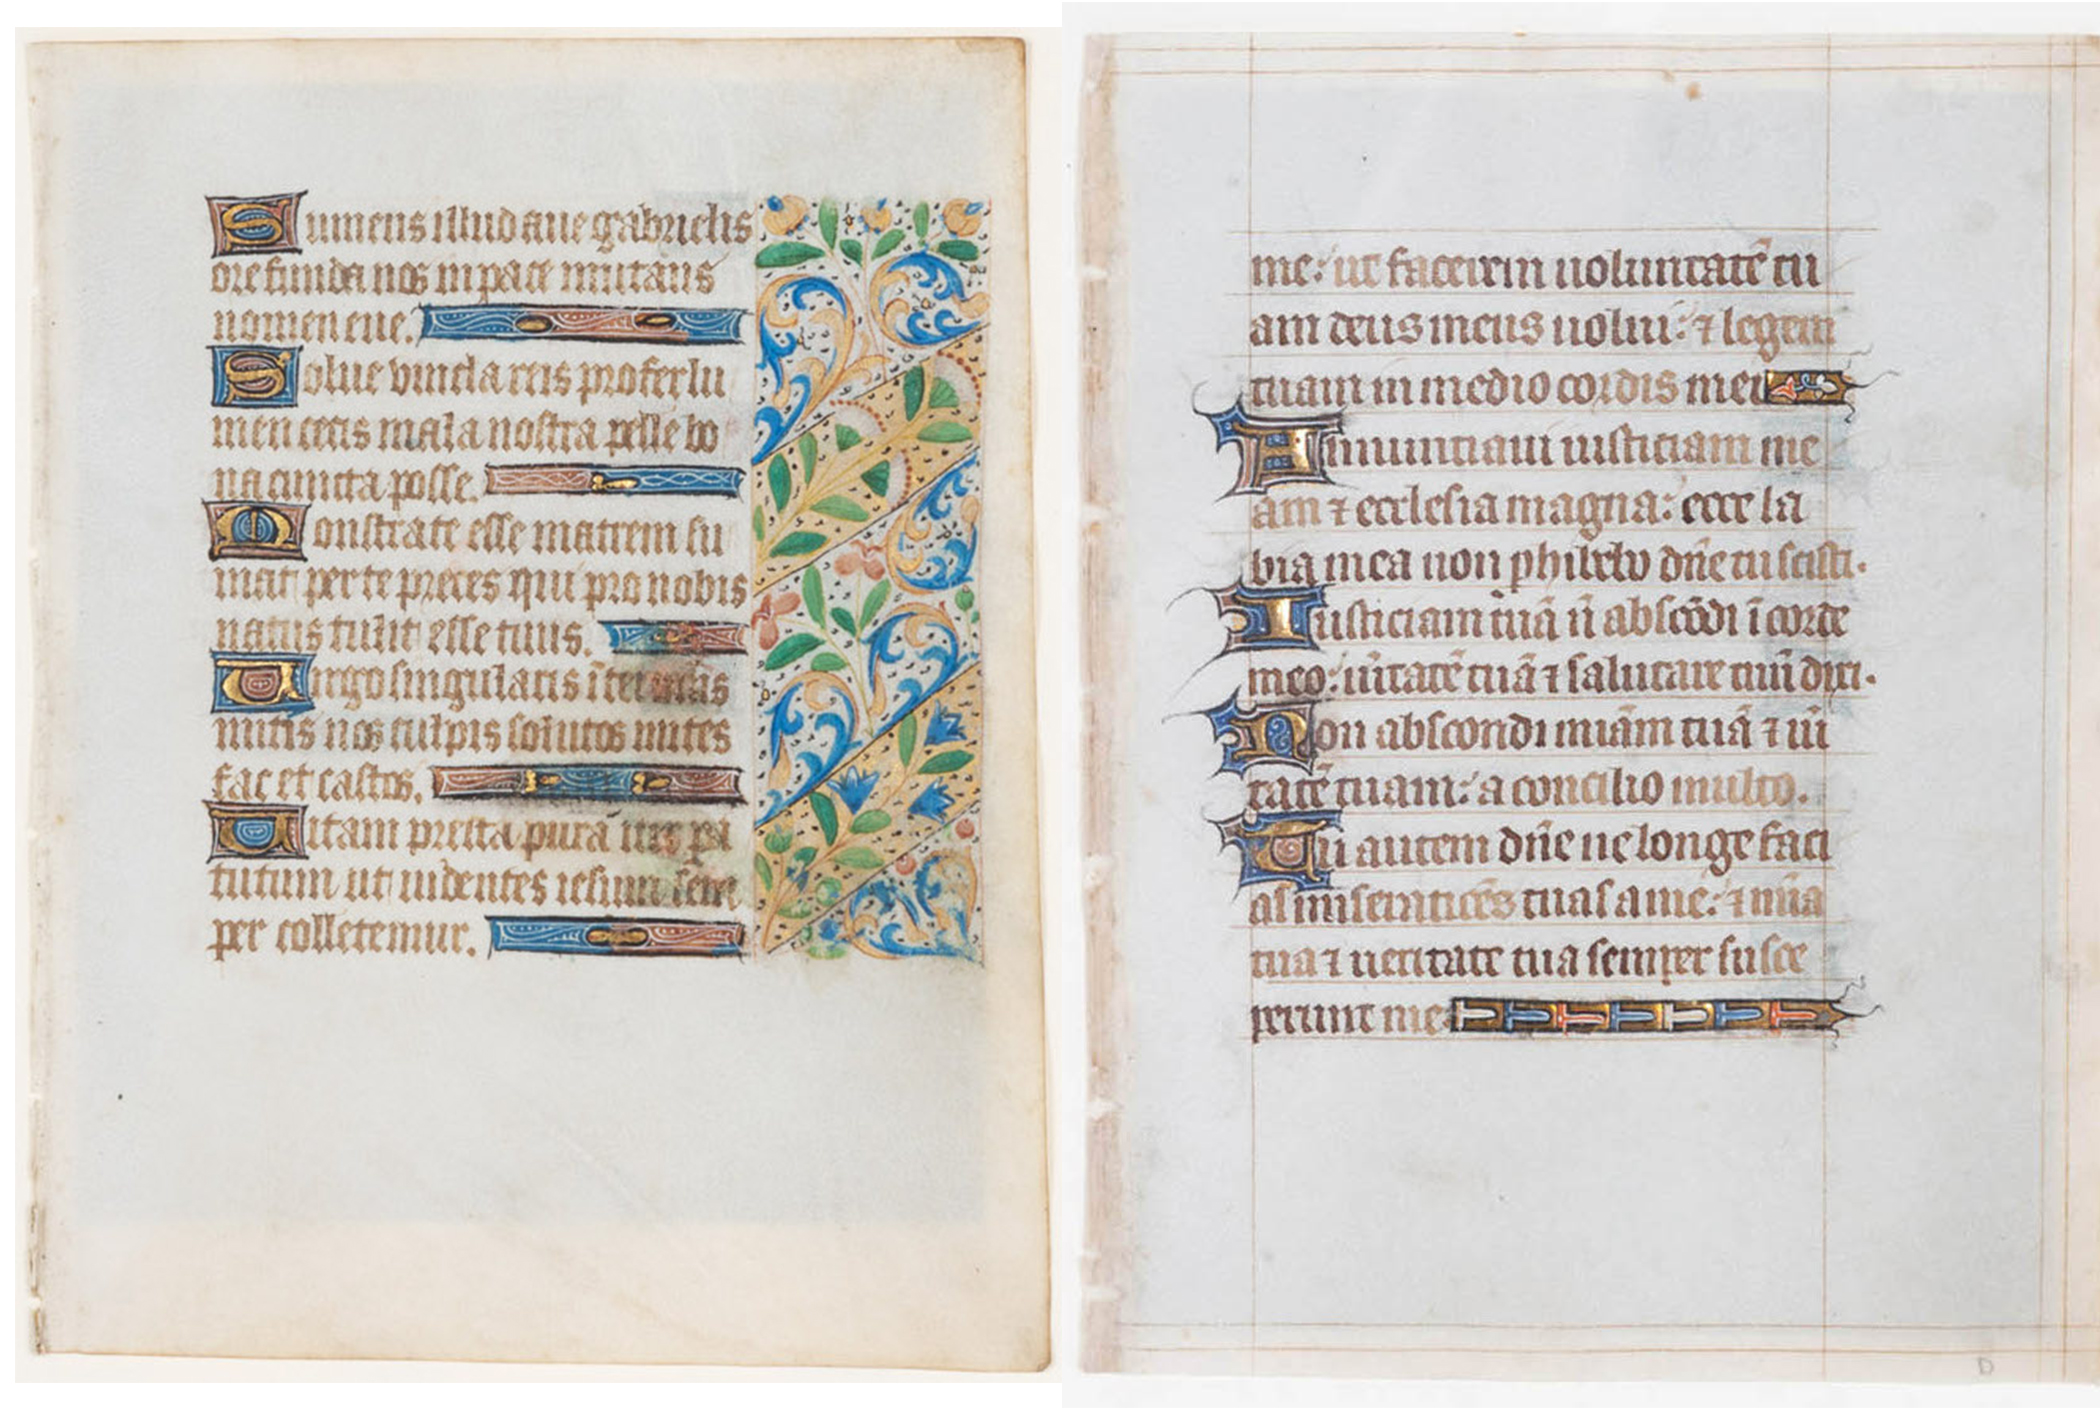 Sumens illud aue gabrielis
ore funda nos in pace mutans
nomen eue.
Solue vincla reis profer lu
men cecis mala nostra pelle bo
na cuncta posse.
Monstrate esse matrem su
mat per te preces qui pro nobis
natus tulit esse tuus.
Uirgo singularis īter
mitis nos culpis solutos mites
fac et castos.
Uitam presta purā
tutum ut uidentes iesum sem
per colletemur.
me: ut facerem uoluntatē tu
am deus meus uolui: ⁊ legem
tuam in medio cordis mei
Annunciaui iusticiam me
am ⁊ ecclesia magna: ecce la
bia mea non phibebo dn̄e tu scisti.
Iusticiam tuā n̄ abscōdi ī corde
meo: uītatē tuā ⁊ salutare tuū dixi.
Non abscondi miām tuā ⁊ uī
tatē tuam: a concilio multo.
Tu autem dn̄e ne longe faci
as miseratiōēs tuas a me: ⁊ mīa
tua ⁊ ueritate tua semper susce
perunt me
D